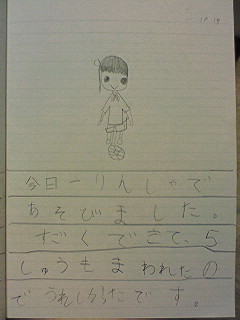 今日一りんしゃで
あそびました。
すごくできて、5
しゅうもまわれたの
で うれしかったです。